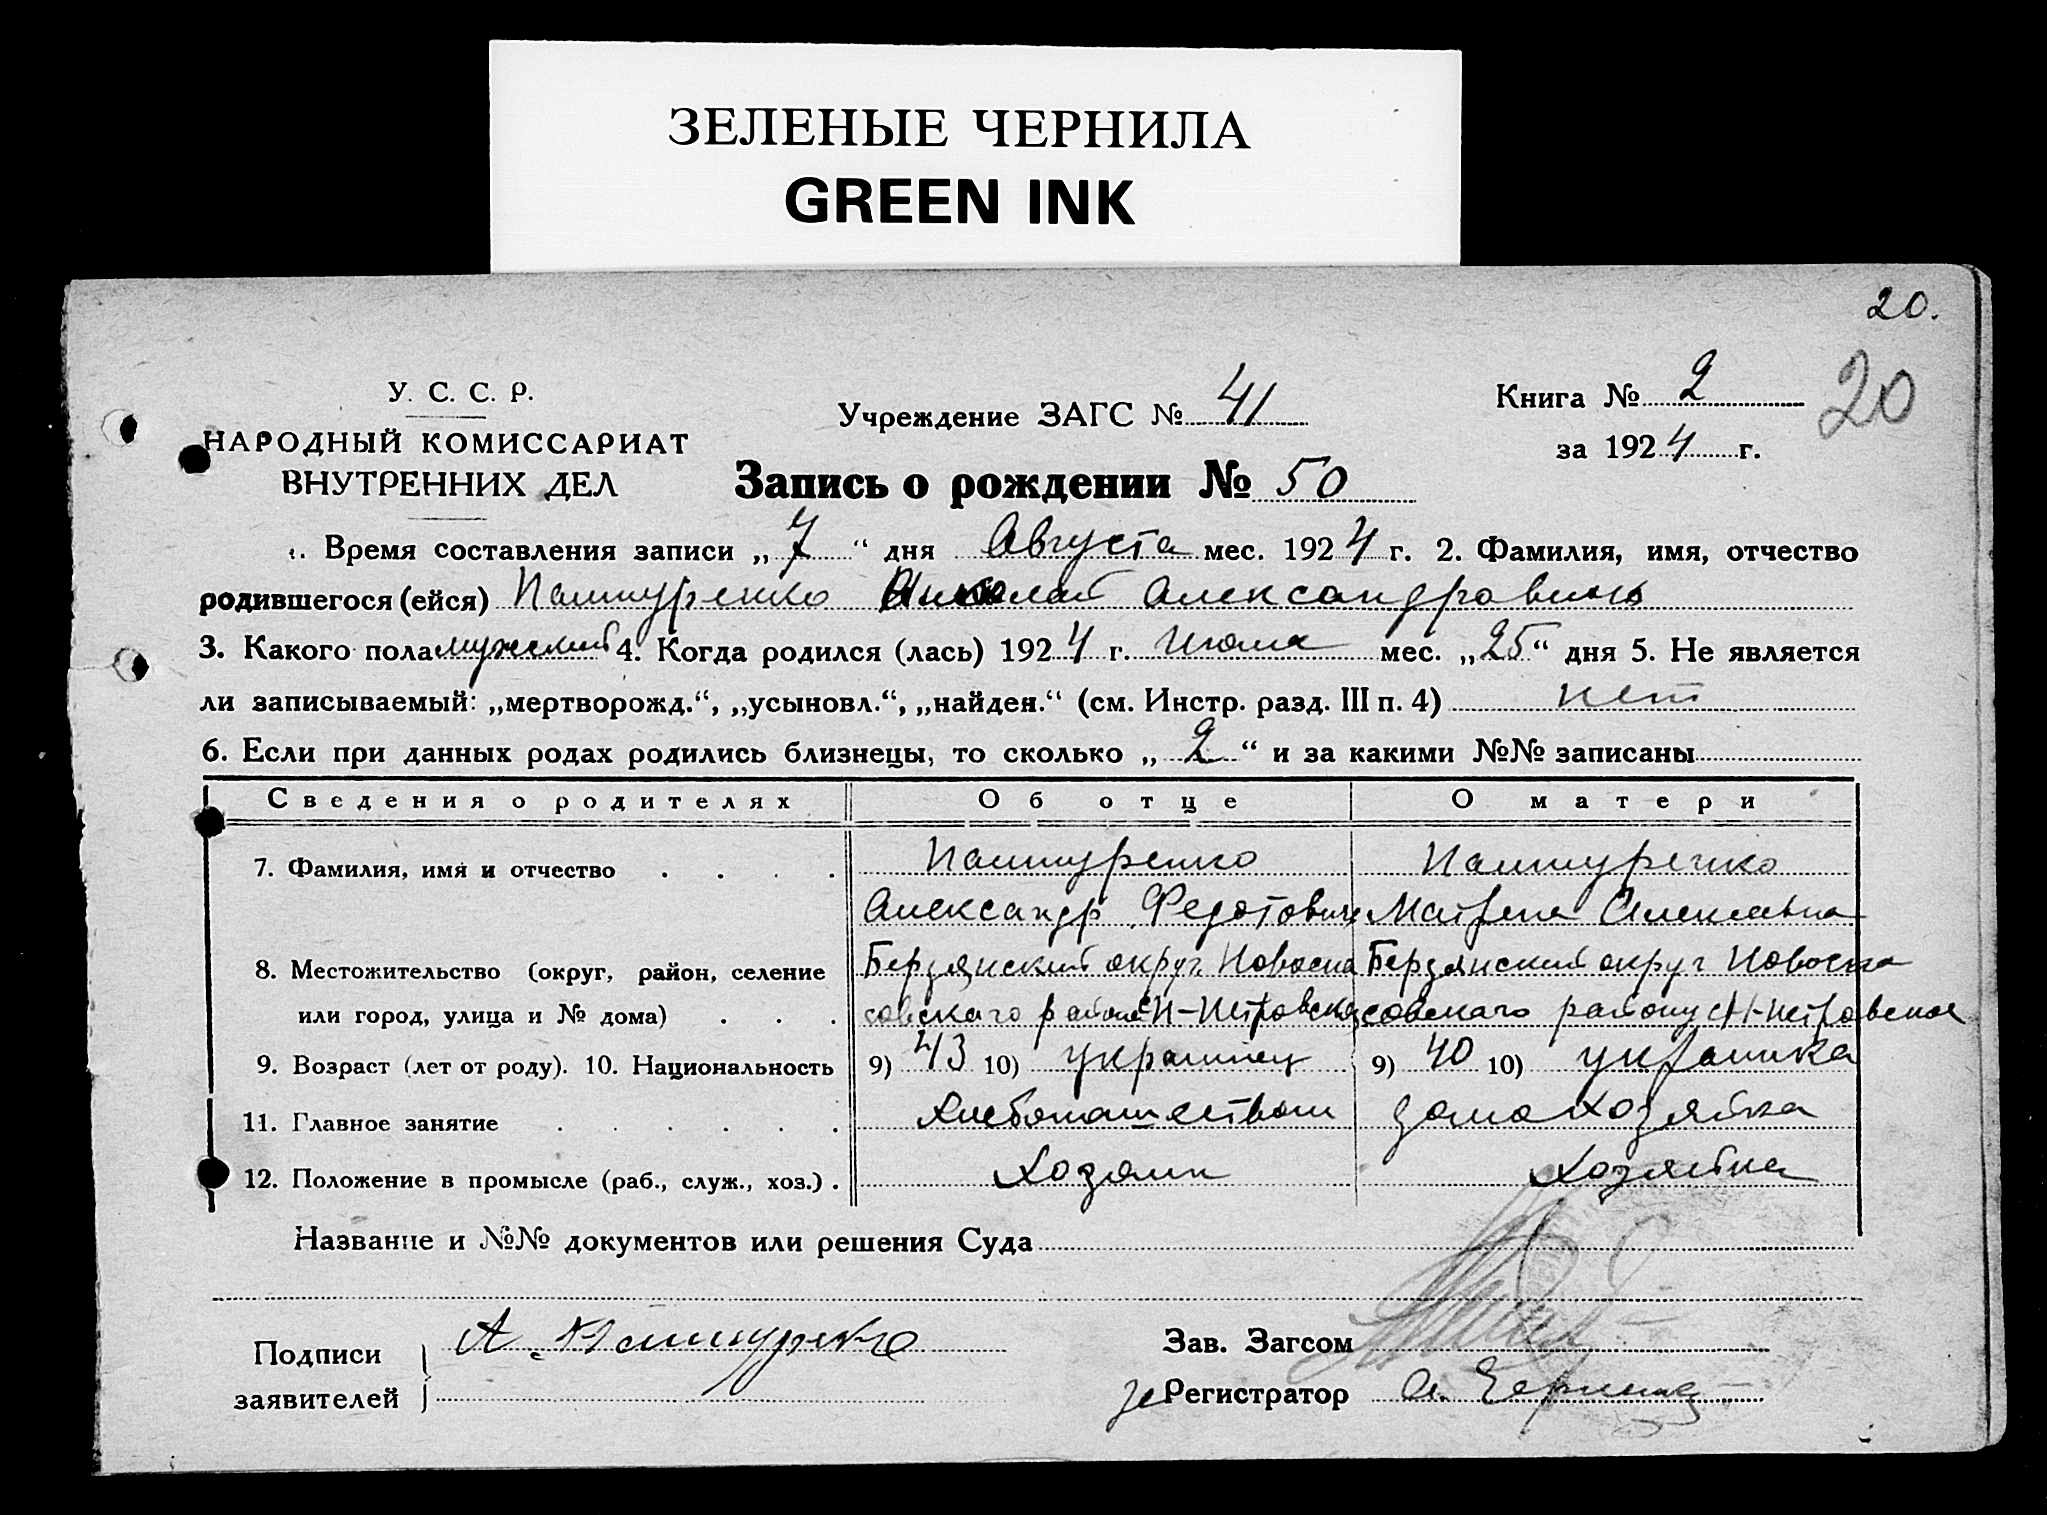 ЗЕЛЕНЫЕ ЧЕРНИЛА
GREEN INK
20.
20
У. С. С. Р.
НАРОДНЫЙ КОМИССАРИАТ
ВНУТРЕННИХ ДЕЛ
Учреждение ЗАГС № 41
Книга № 2
за 1924 г.
Запись о рождении № 50
1. Время составления записи „7“ дня Августа мес. 1924 г. 2. Фамилия, имя, отчество
родившегося (ейся) Пашуренко Николай Александрович
3. Какого пола мужский 4. Когда родился (лась) 1924 г. Июля мес. „25“ дня 5. Не является
ли записываемый: „мертворожд.“, „усыновл.“, „найден.“ (см. Инстр. разд. III п. 4) нет
6. Если при данных родах родились близнецы, то сколько „2“ и за какими №№ записаны
Сведения о родителях Об отце О матери
7. Фамилия, имя и отчество Пашуренко Пашуренко
Александр Федотович Матрена Алексеевна
8. Местожительство (округ, район, селение Бердянский округ Новоспа Бердянский округ Новоспа
или город, улица и № дома) совского района Н-Петровска совского району Н-Петровское
9. Возраст (лет от роду). 10. Национальность 9) 43 10) украинец 9) 40 10) украинка
11. Главное занятие Хлебопашеством домохозяйка
12. Положение в промысле (раб., служ., хоз.) Хозяин Хозяйка
Название и №№ документов или решения Суда
Подписи
заявителей
А. Пашуренко
Зав. Загсом
за Регистратор